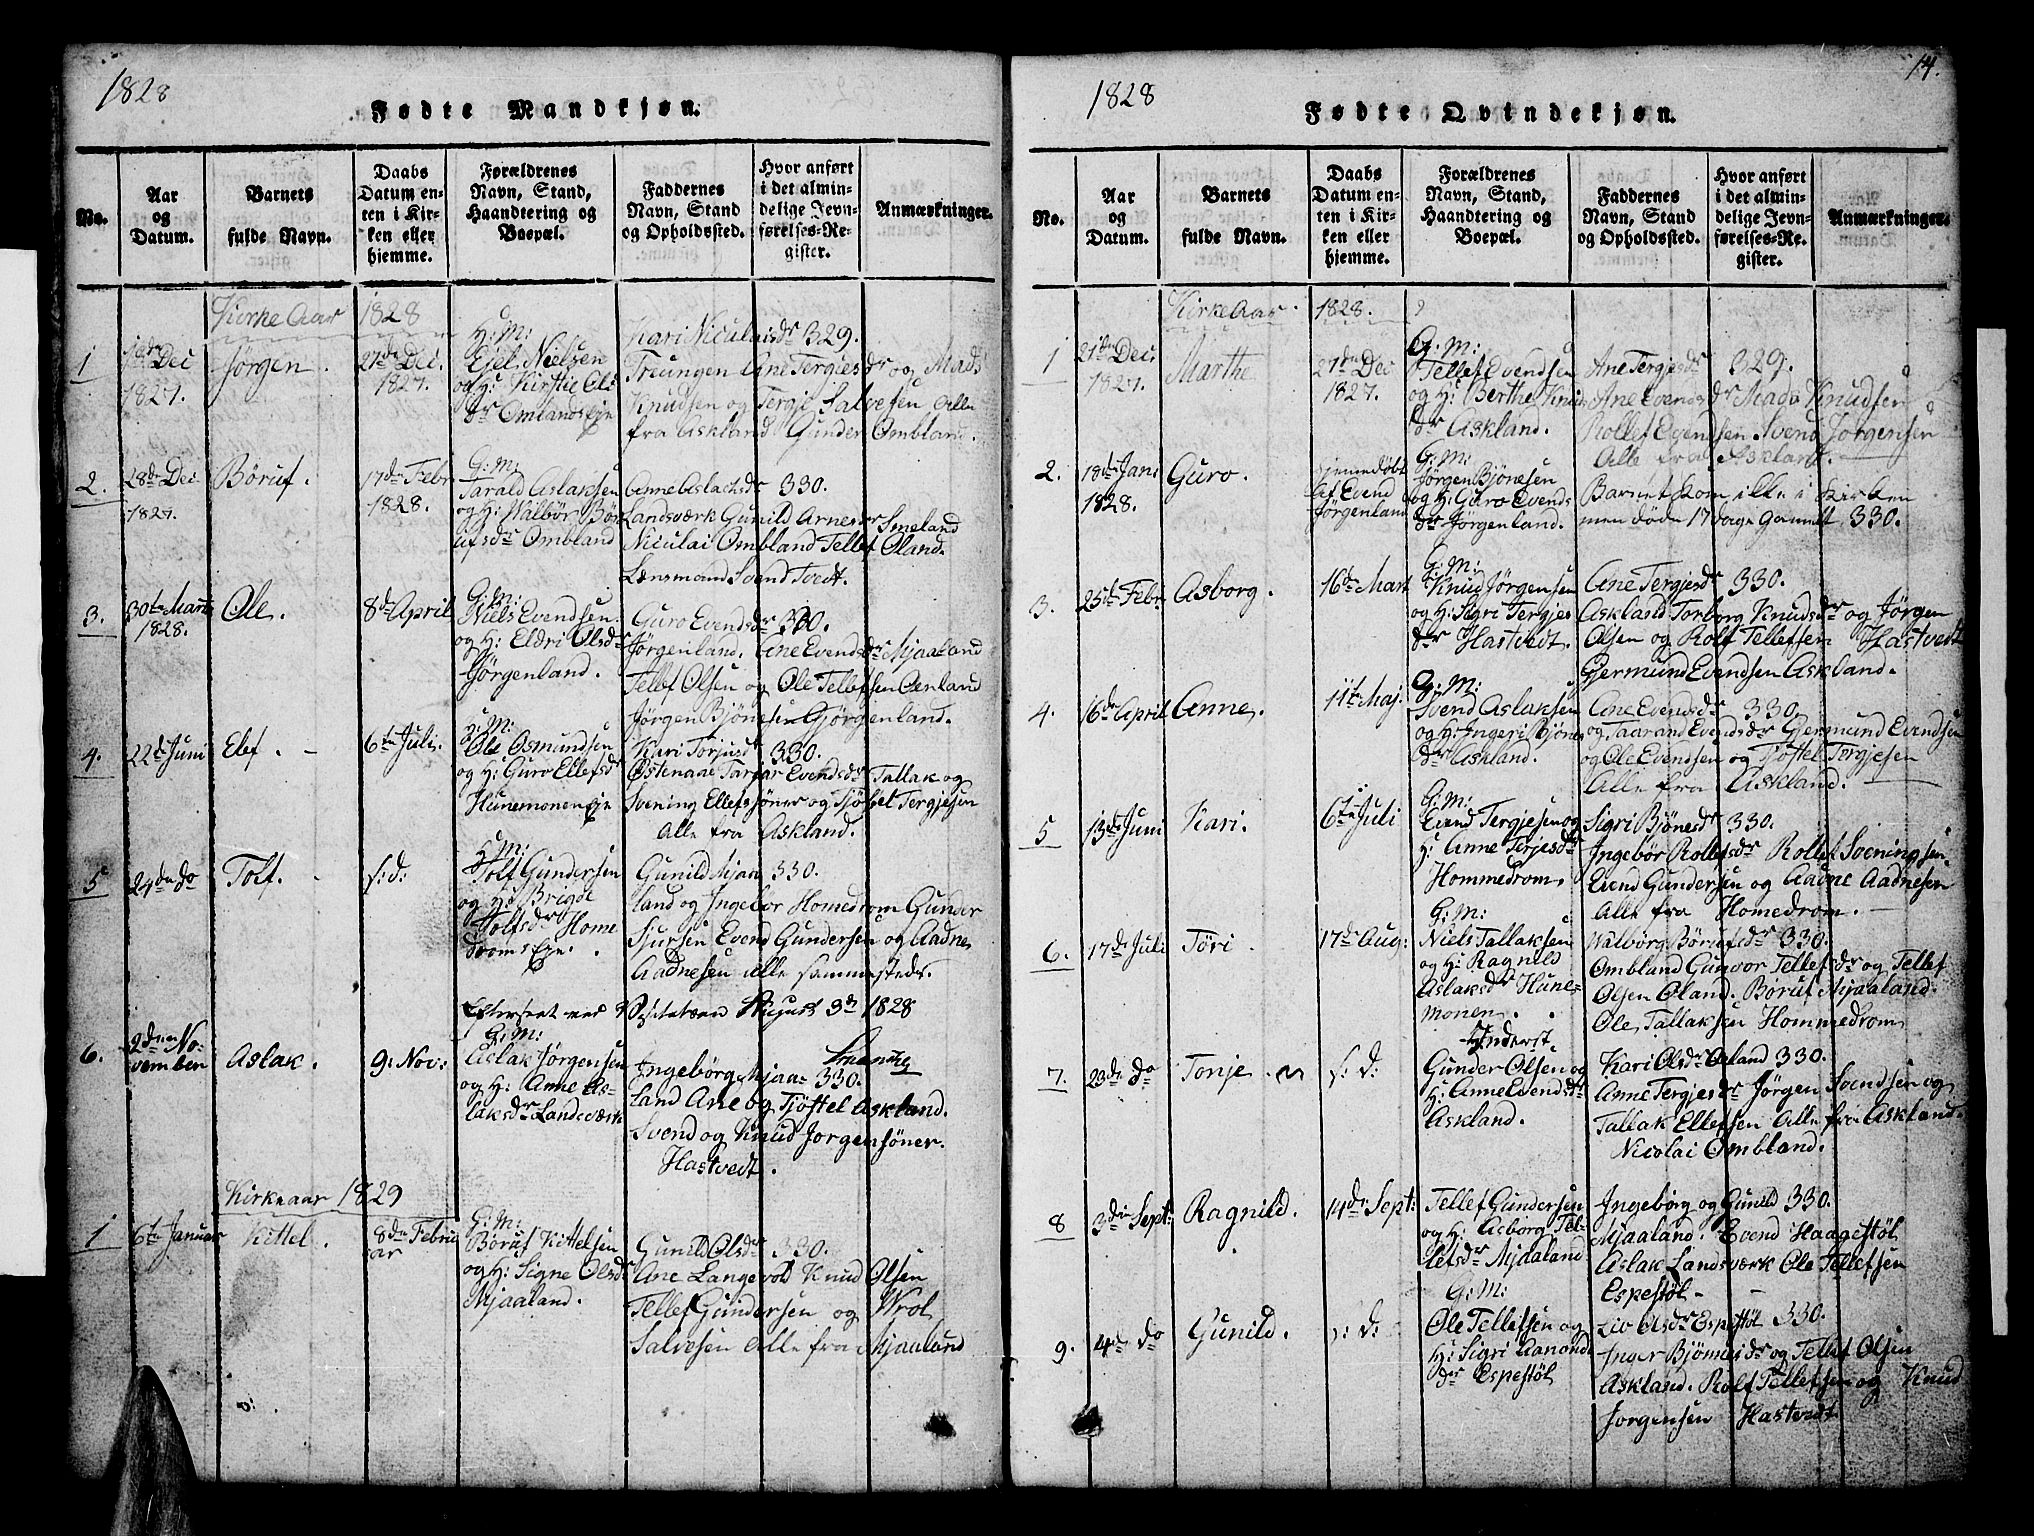 1828
Fødte Mandkjøn.
No.
Aar
og
Datum.
Barnets
fulde Navn.
Daabs
Datum en-
ten i Kir-
ken eller
hjemme.
Forældrenes
Navn, Stand,
Haandtering og
Boepæl.
Faddernes
Navn, Stand
og Opholdssted.
Hvor anført
i det almin-
delige Jevn-
førelses-Re-
gister.
Anmærkninger.
Kirke Aar 1828
1
Dec
1827.
Jørgen.
27de Dec.
1827.
G: M:
Ejel Nielsen
og H: Kirstie Ols
dr Omlands Eje
Kari Niculaisdr 329.
Treungen Ane Tergiesdr og Mads
Knudsen og Tergi Salvesen Alle
fra Askland Gunder Ombland.
2.
28de Dec
1827.
Børuf.
17de Febr
1828.
G: M:
Tarald Aslaksen
og H: Walbør Bør
ufsdr Ombland
Anne Aslachsdr 330.
Landsværk Gunild Arnesdr Smeland
Niculai Ombland Tellef Øland.
Lænsmand Svend Tvedt.
3.
30te Marts
1828.
Ole.
8de April
G: M:
Niels Evendsen
og H: Eldri Olsdr
Jørgenland.
Guro Evendsdr 330.
Jørgenland. Ane Evendsdr Mjaaland
Tellef Olsen og Ole Tellefsen Øenland
Jørgen Bjønesen Gjørgenland.
4.
22de Juni
Elef.
6te Juli.
G: M:
Ole Osmundsen
og H: Guro Ellefsdr
Hunemonen Eje
Kari Torjusdr 330.
Østenaae Targar Evendsdr Tallak og
Svening Ellefssøner og Tjøstel Tergjesen
Alle fra Askland.
5
24de do
Tolf.
s: d:
G: M:
Tolf Gundersen
og H: Brigde
Tolfsdr Home
droms Eje.
Gunild Mjaa- 330.
land og Ingebør Homedrom Gunder
Sjursen Evend Gundersen og Aadne
Aadnesen alle sammesteds.
Efterseet ved Visitatsen August 3d 1828
6.
2den No-
vember
Aslak.
9. Nov:
G: M:
Aslak Jørgensen
og H: Anne As-
laksdr Landsværk
Ingebørg Mjaa- 330.
land Ane og Tjøstel Askland.
Svend og Knud Jorgensøner
Hastvedt.
Kirkeaar 1829
1
6te Januar
Kittel.
8de Febru
ar
G: M:
Børuf Kittelsen
og H: Signe Olsdr
Mjaaland.
Gunild Olsdr 330.
Ane Langevold Knud Olsen
Tellef Gundersen og Wrol
Salvesen Alle fra Mjaaland
14.
1828
Fødte Qvindekjøn.
No.
Aar
og
Datum.
Barnets
fulde Navn.
Daabs
Datum en-
ten i Kir-
ken eller
hjemme.
Forældrenes
Navn, Stand,
Haandtering og
Boepæl.
Faddernes
Navn, Stand
og Opholdssted.
Hvor anført
i det almin-
delige Jevn-
førelses-Re-
gister.
Anmærkninger.
Kirke Aar 1828.
1
21de Dec.
1827.
Marthe
27de Dec
1827.
G. M:
Tellef Evendsen
og H: Berthe Knuds
dr Askland.
Ane Tergiesdr 329.
Ane Evendsdr Mads Knudsen
Rollef Evendsen Svend Jørgensen
Alle fra Askland.
2.
18de Jan:
1828.
Guro.
hjemmedøbt
af Evend
Jørgenland
G: M:
Jørgen Bjønesen
og H: Guro Evends
dr Jørgenland.
Barnet kom ikke i Kirken
men døde 17 dage gammelt 330.
3.
25de Febr
Asborg.
16de Mart
G: M:
Knud Jørgensen
og H: Sigri Tergjes
dr Hastvedt.
Ane Tergjesdr 330.
Askland Torborg Knudsdr og Jørgen
Olsen og Rolf Tellefsen Hastvedt
Gjermund Evendsen Askland.
4.
16de April
Anne.
11te Maj.
G: M:
Svend Aslaksen
og H: Ingeri Bjønes
dr Askland.
Ane Evendsdr 330
og Taarand Evendsdr Gjermund Evendsen
og Ole Evendsen og Tjøstel Tergjesen
Alle fra Askland.
5
13de Juni
Kari.
6te Juli
G: M:
Evend Tergjesen og
H: Anne Terjesdr
Hommedrom.
Sigri Bjønesdr 330.
Ingebør Rollefsdr Rollef Sveningsen.
Evend Gundersen og Aadne Aadnesen
Alle fra Homedrom.
6.
17de Juli
Tøri
17de Aug:
G: M:
Niels Tallaksen
og H: Ragnild
Aslaksdr Hune-
monen.
Walbørg Børufsdr 330.
Ombland Gunvor Tellefsdr og Tellef
Olsen Øland. Børuf Mjaaland.
Ole Tallaksen Hommedrom
7.
23de do
Tonje.
s: d:
Inderst.
Gunder Olsen og
H: Anne Evendsdr
Askland.
Kari Olsdr Øeland 330.
Anne Tergjesdr Jørgen Svendsen og
Tallak Ellefsen Alle fra Askland.
Nicolai Ombland.
8
3die Sept:
Ragnild.
14de Sept:
Tellef Gundersen
og H: Asborg Tel-
lefsdr Mjaaland
Ingebørg og Gunild 330.
Mjaaland. Evend Haagestøl
Aslak Landsværk Ole Tellefsen
Espestøl
9.
4de do
Gunild.
s: d:
G: M:
Ole Tellefsen og
H: Sigri Aanond
dr Espestøl
Liv Olsdr Espestøl 330.
Inger Bjønnesdr og Tellef Olsen
Askland. Rolf Tellefsen og Knud
Jorgensen Hastvedt.